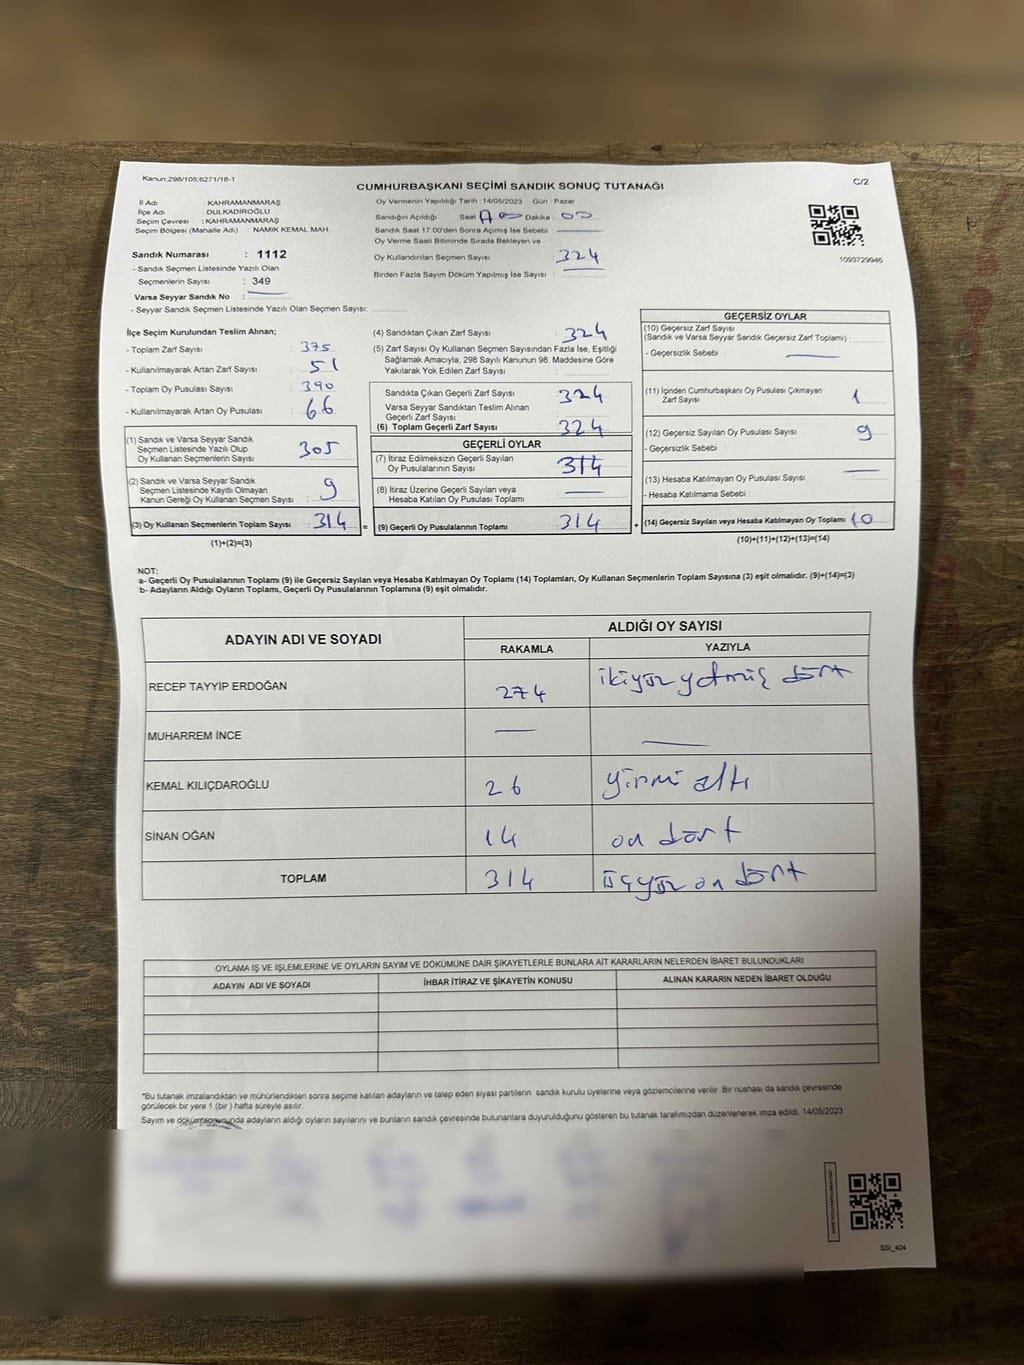 Kanun;298/105;6271/18-1
C/2
CUMHURBAŞKANI SEÇİMİ SANDIK SONUÇ TUTANAĞI
İl Adı : KAHRAMANMARAŞ
İlçe Adı : DULKADİROĞLU
Seçim Çevresi : KAHRAMANMARAŞ
Seçim Bölgesi (Mahalle Adı) : NAMIK KEMAL MAH.
Sandık Numarası : 1112
- Sandık Seçmen Listesinde Yazılı Olan
Seçmenlerin Sayısı : 349
Varsa Seyyar Sandık No :
- Seyyar Sandık Seçmen Listesinde Yazılı Olan Seçmen Sayısı:
Oy Vermenin Yapıldığı Tarih : 14/05/2023 Gün : Pazar
Sandığın Açıldığı Saat Dakika : 00
Sandık Saat 17:00'den Sonra Açımış İse Sebebi :
Oy Verme Saati Bitiminde Sırada Bekleyen ve
Oy Kullandırılan Seçmen Sayısı : 324
Birden Fazla Sayım Döküm Yapılmış İse Sayısı :
1093729946
İlçe Seçim Kurulundan Teslim Alınan;
- Toplam Zarf Sayısı : 375
- Kullanılmayarak Artan Zarf Sayısı : 51
- Toplam Oy Pusulası Sayısı : 390
- Kullanılmayarak Artan Oy Pusulası : 66
(1) Sandık ve Varsa Seyyar Sandık
Seçmen Listesinde Yazılı Olup
Oy Kullanan Seçmenlerin Sayısı : 305
(2) Sandık ve Varsa Seyyar Sandık
Seçmen Listesinde Kayıtlı Olmayan
Kanun Gereği Oy Kullanan Seçmen Sayısı : 9
(3) Oy Kullanan Seçmenlerin Toplam Sayısı : 314 =
(1)+(2)=(3)
(4) Sandıktan Çıkan Zarf Sayısı : 324
(5) Zarf Sayısı Oy Kullanan Seçmen Sayısından Fazla İse, Eşitliği
Sağlamak Amacıyla; 298 Sayılı Kanunun 98. Maddesine Göre
Yakılarak Yok Edilen Zarf Sayısı :
Sandıkta Çıkan Geçerli Zarf Sayısı : 324
Varsa Seyyar Sandıktan Teslim Alınan
Geçerli Zarf Sayısı :
(6) Toplam Geçerli Zarf Sayısı : 324
GEÇERLİ OYLAR
(7) İtiraz Edilmeksizin Geçerli Sayılan
Oy Pusulalarının Sayısı : 314
(8) İtiraz Üzerine Geçerli Sayılan veya
Hesaba Katılan Oy Pusulası Sayısı :
(9) Geçerli Oy Pusulalarının Toplamı : 314 +
GEÇERSİZ OYLAR
(10) Geçersiz Zarf Sayısı
(Sandık ve Varsa Seyyar Sandık Geçersiz Zarf Toplamı) :
- Geçersizlik Sebebi :
(11) İçinden Cumhurbaşkanı Oy Pusulası Çıkmayan
Zarf Sayısı : 1
(12) Geçersiz Sayılan Oy Pusulası Sayısı : 9
- Geçersizlik Sebebi :
(13) Hesaba Katılmayan Oy Pusulası Sayısı :
- Hesaba Katılmama Sebebi :
(14) Geçersiz Sayılan veya Hesaba Katılmayan Oy Toplamı : 10
(10)+(11)+(12)+(13)=(14)
NOT:
a- Geçerli Oy Pusulalarının Toplamı (9) ile Geçersiz Sayılan veya Hesaba Katılmayan Oy Toplamı (14) Toplamları, Oy Kullanan Seçmenlerin Toplam Sayısına (3) eşit olmalıdır. (9)+(14)=(3)
b- Adayların Aldığı Oyların Toplamı, Geçerli Oy Pusulalarının Toplamına (9) eşit olmalıdır.
ADAYIN ADI VE SOYADI
ALDIĞI OY SAYISI
RAKAMLA YAZIYLA
RECEP TAYYİP ERDOĞAN 274 ikiyüz yetmiş dört
MUHARREM İNCE
KEMAL KILIÇDAROĞLU 26 yirmi altı
SİNAN OĞAN 14 on dört
TOPLAM 314 üçyüz on dört
OYLAMA İŞ VE İŞLEMLERİNE VE OYLARIN SAYIM VE DÖKÜMÜNE DAİR ŞİKAYETLERLE BUNLARA AİT KARARLARIN NELERDEN İBARET BULUNDUKLARI
ADAYIN ADI VE SOYADI İHBAR İTİRAZ VE ŞİKAYETİN KONUSU ALINAN KARARIN NEDEN İBARET OLDUĞU
*Bu tutanak imzalandıktan ve mühürlendikten sonra seçime katılan adayların ve talep eden siyasi partilerin sandık kurulu üyelerine veya gözlemcilerine verilir. Bir nüshası da sandık çevresinde
görülecek bir yere 1 (bir) hafta süreyle asılır.
Sayım ve döküm sonucunda adayların aldığı oyların sayılarını ve bunların sandık çevresinde bulunanlara duyurulduğunu gösteren bu tutanak tarafımızdan düzenlenerek imza edildi. 14/05/2023
SSI_404